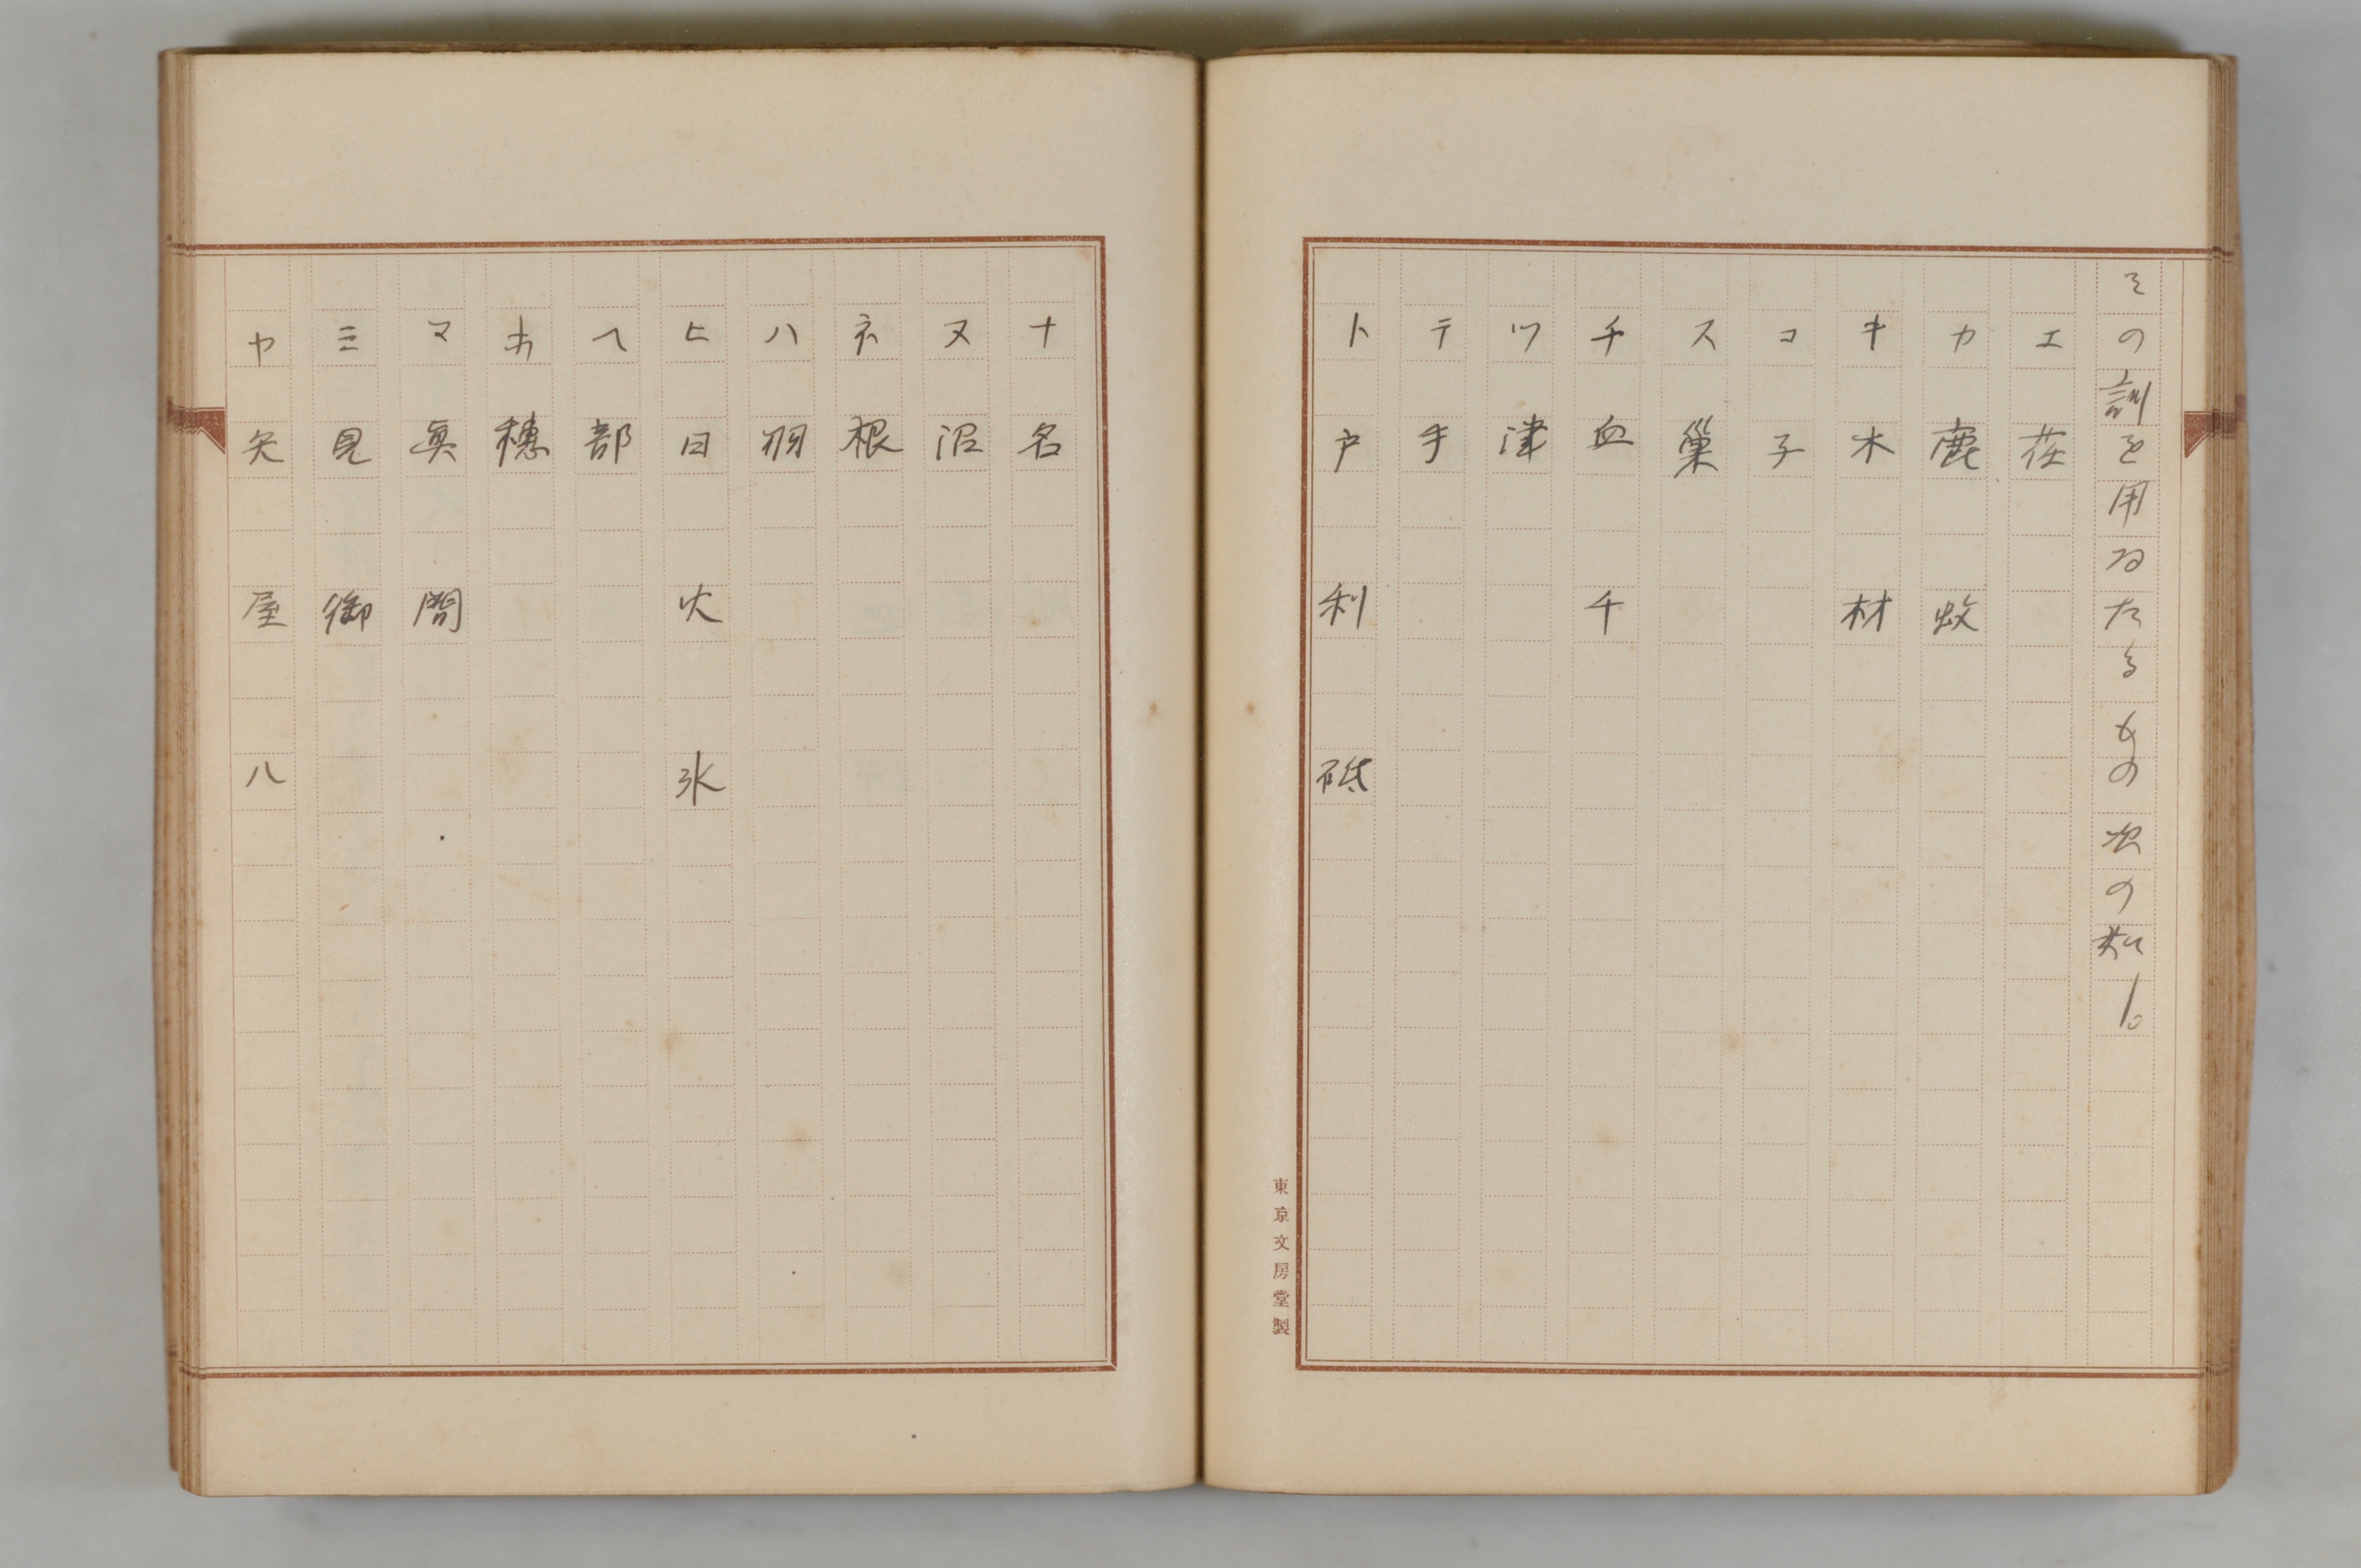 その訓を用ゐたるもの次の如し。
エ 荏
カ 鹿 蚊
キ 木 材
コ 子
ス 巣
チ 血 千
ツ 津
テ 手
ト 戸 利 砥
東京文房堂製
ナ 名
ヌ 沼
ネ 根
ハ 羽
ヒ 日 火 氷
ヘ 部
ホ 穂
マ 眞 間
ミ 見 御
ヤ 矢 屋 八